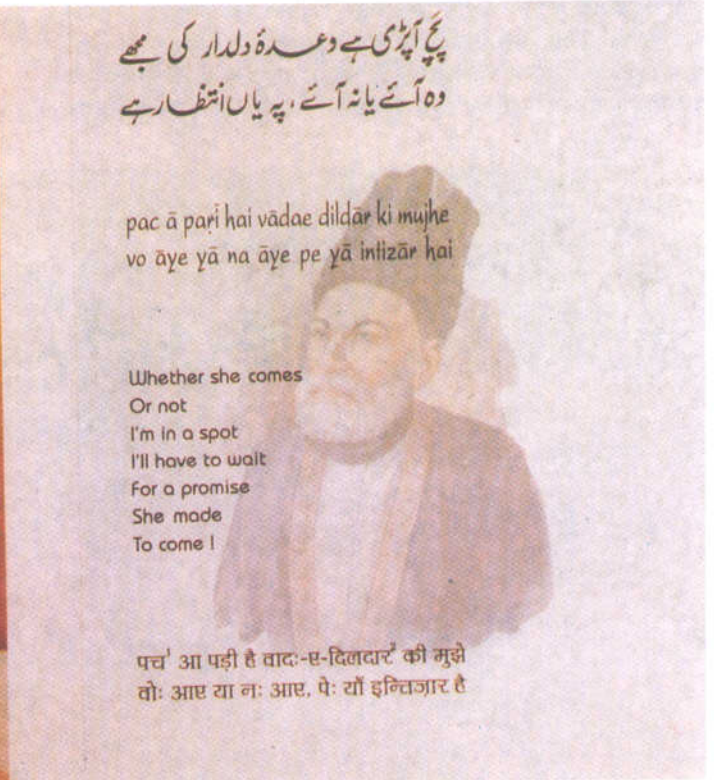 پچ آپڑی ہے وعدۂ دلدار کی مجھے
وہ آئے یا نہ آئے، پہ یاں انتظار ہے
pac ā paṛi hai vādae dildār ki mujhe
vo āye yā na āye pe yā intizār hai
Whether she comes
Or not
I'm in a spot
I'll have to wait
For a promise
She made
To come !
पच¹ आ पड़ी है वादः-ए-दिलदार² की मुझे
वोः आए या नः आए, पेः याँ इन्तिज़ार है